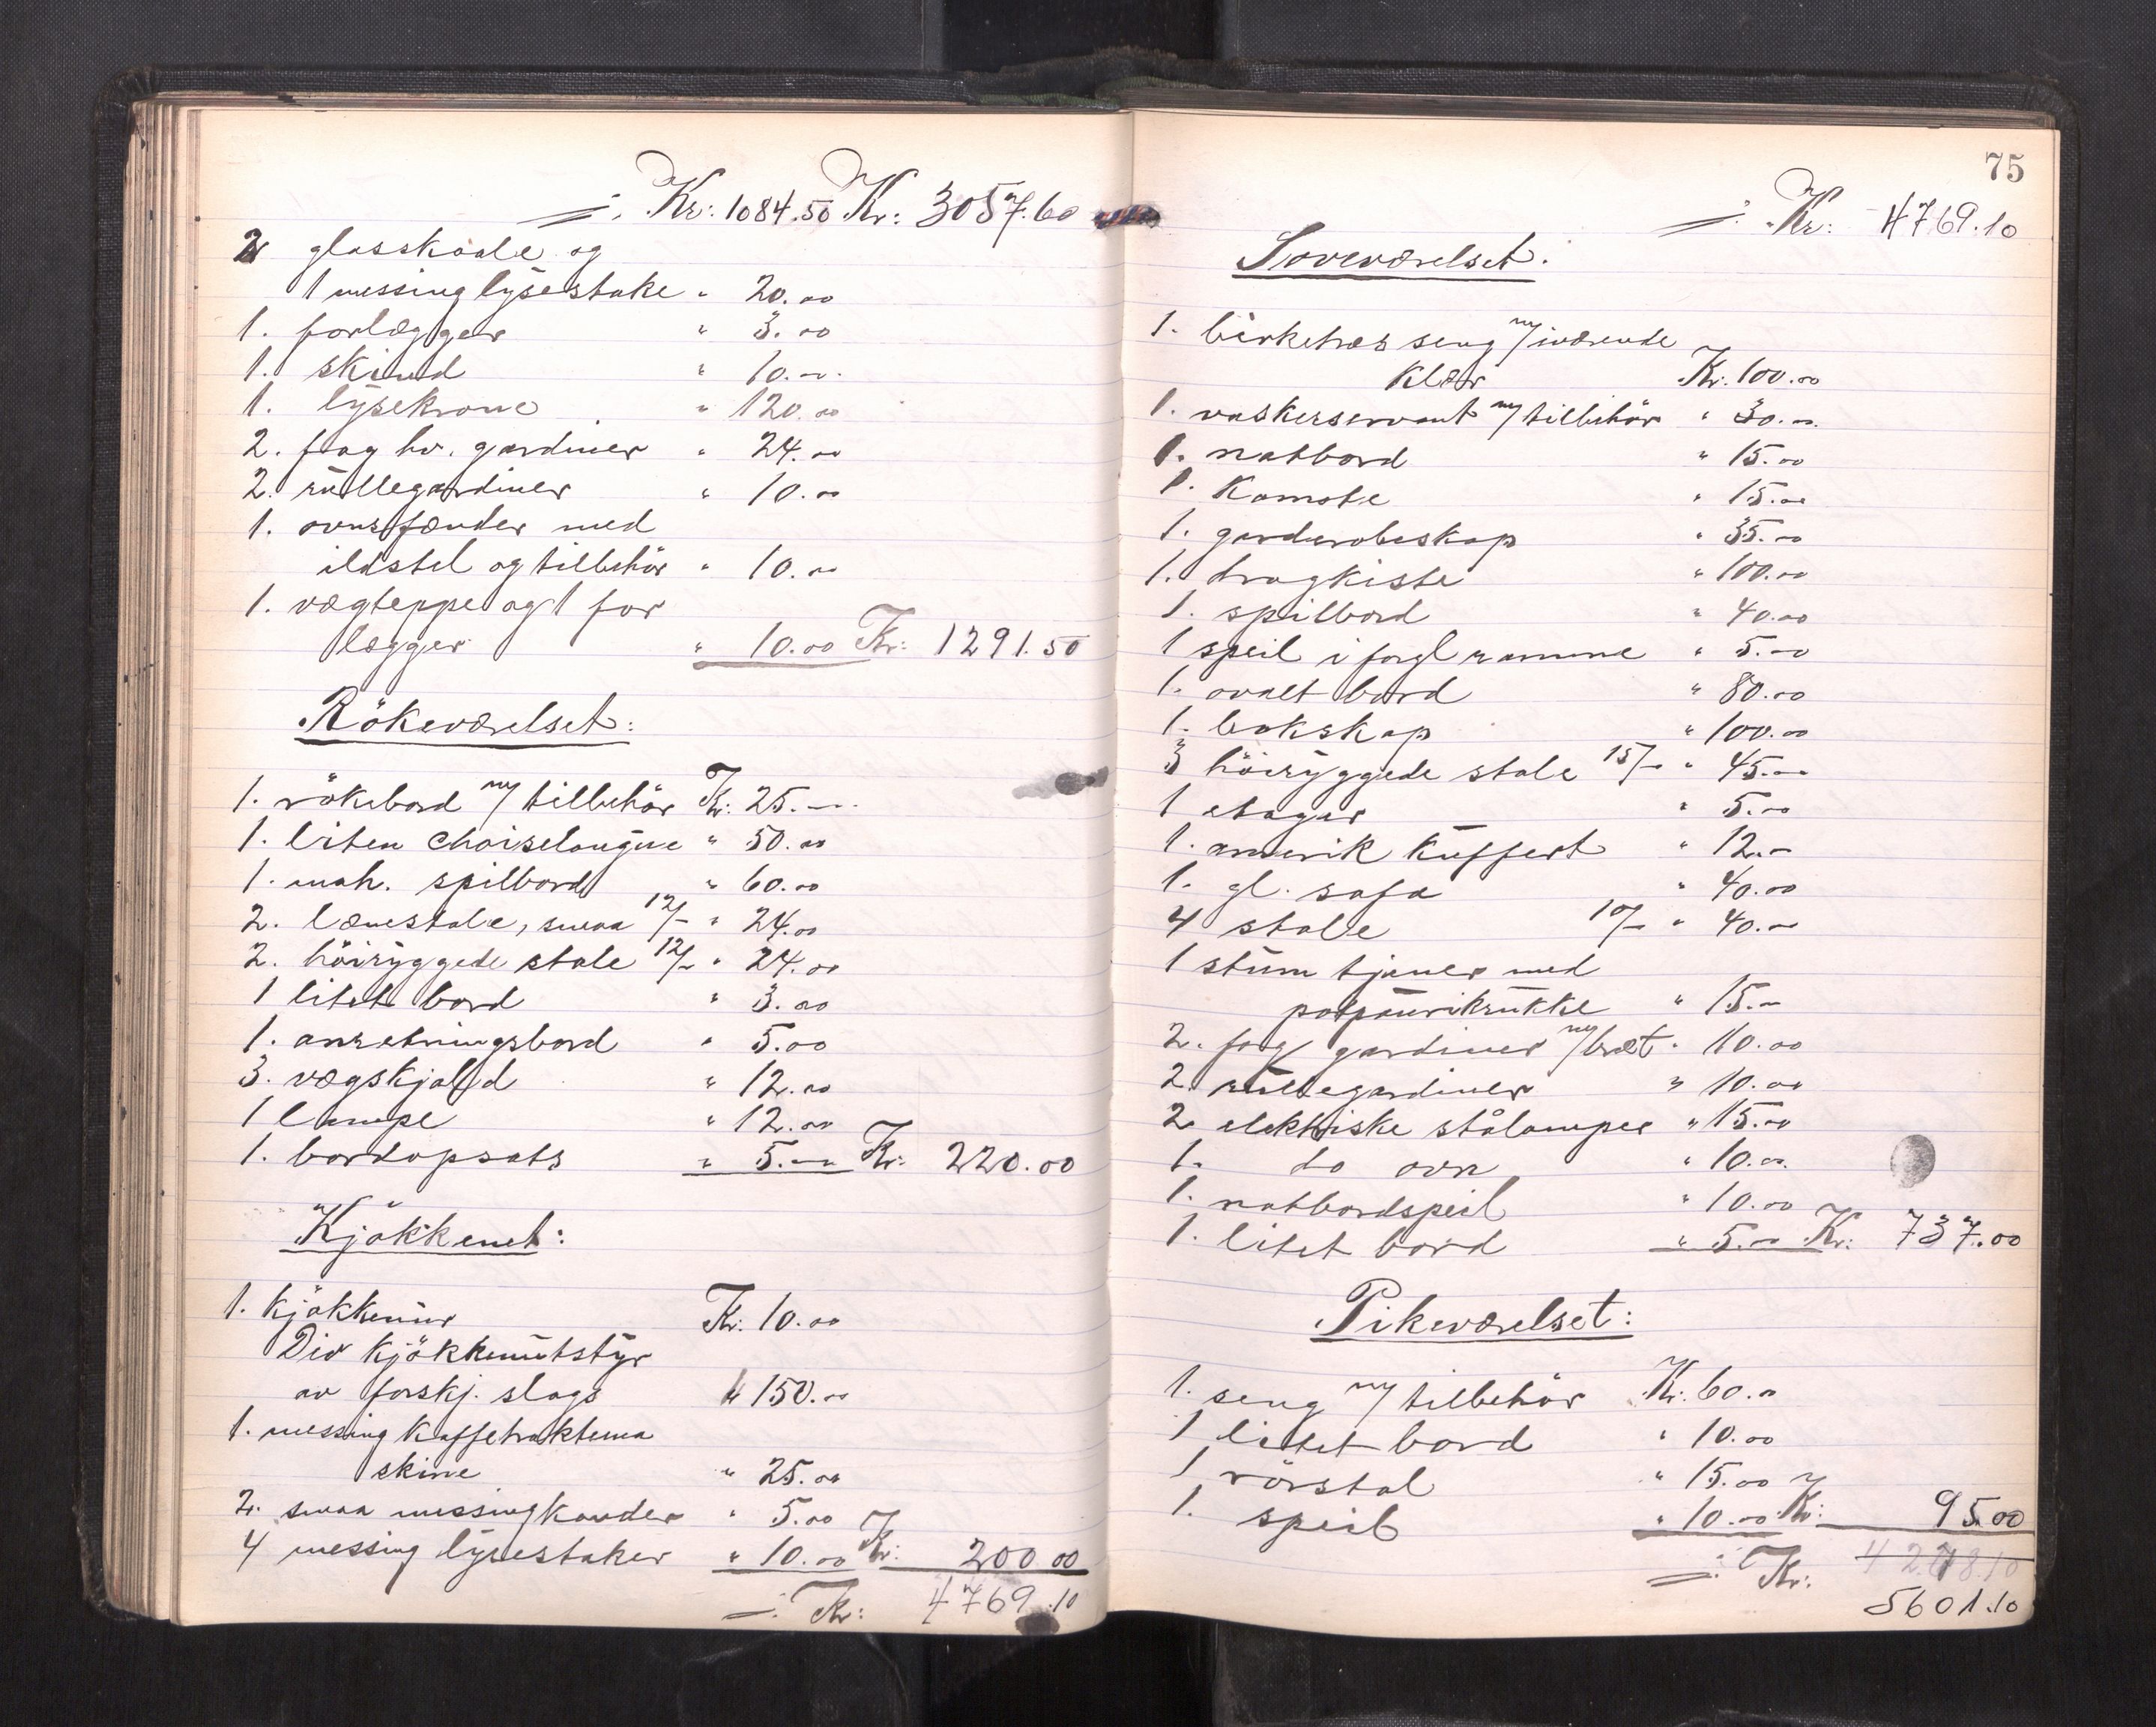 ÷ Kr: 1084.50 Kr: 3057.60
2 glasskaale og
1 messing lysestake " 20.00
1. forlægger " 3.00
1. skind " 10.00
1. lysekrone " 120.00
2. fag hv. gardiner " 24.00
2. rullegardiner " 10.00
1. ovnsfænder med
ildstel og tilbehör " 10.00
1. vægteppe og 1 for
lægger " 10.00 Kr: 1291.50
Rökeværelset:
1. rökebord m/ tilbehör Kr: 25.—
1. liten chaiselongue " 50.00
1. mah. spilbord " 60.00
2. lænestole, smaa 12/- " 24.00
2. höiryggede stole 12/- " 24.00
1 litet bord " 3.00
1. anretningsbord " 5.00
3. vægskjold " 12.00
1 lampe " 12.00
1. bordopsats " 5.— Kr: 220.00
Kjökkenet:
1. Kjökkenur Kr: 10.00
Div kjökkenutstyr
av forskj. slags " 150.00
1. messing kaffetraktema
skine " 25.00
2. smaa messingkander " 5.00
4 messing lysestaker " 10.00 Kr: 200.00
÷ Kr: 4769.10
75
÷ Kr: 4769.10
Soveværelset:
1. birketræs seng m/ iværende
klær Kr. 100.00
1. vaskerservant m/ tilbehör " 30.00
1. natbord " 15.00
1. Komode " 15.00
1. garderobeskap " 35.00
1. dragkiste " 100.00
1. spilbord " 40.00
1 speil i forgl ramme " 5.00
1. ovalt bord " 80.00
1. bokskap " 100.00
3 höiryggede stole 15/- " 45.00
1 etager " 5.00
1. amerik kuffert " 12.—
1. gl. sofa " 40.00
4 stole 10/- " 40.00
1 stum tjener med
potpourikrukke " 15.—
2. fag gardiner m/bræt " 10.00
2 rullegardiner " 10.00
2 elektriske stålamper " 15.00
1. do ovn " 10.00
1. natbordspeil " 10.00
1. litet bord " 5.00 Kr: 737.00
Pikeværelset:
1. seng m/ tilbehör Kr: 60.00
1 litet bord " 10.00
1 rörstol " 15.00
1. speil " 10.00 Kr: 95.00
÷ Kr:
5601.10